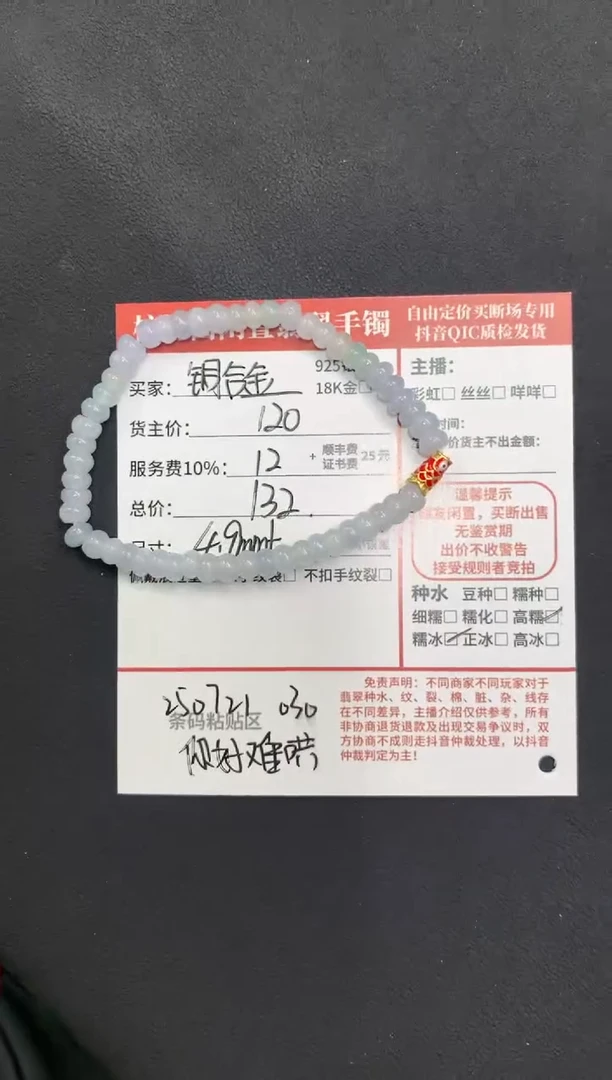 手镯
自由定价买断场专用
抖音QIC质检发货
买家: 铜合金
925
18K金□
主播:
彩虹□ 丝丝□ 咩咩□
货主价: 120
时间:
价货主不出金额:
服务费10%: 12 + 顺丰费 证书费 25元
总价: 132.
尺寸: 4.9mm
□ 不扣手纹裂□
温馨提示
闲置，买断出售
无鉴赏期
出价不收警告
接受规则者竞拍
种水 豆种□ 糯种□
细糯□ 糯化□ 高糯□
糯冰□ 正冰□ 高冰□
250721 030
条码粘贴区
你好难哄
免责声明：不同商家不同玩家对于
翡翠种水、纹、裂、棉、脏、杂、线存
在不同差异，主播介绍仅供参考，所有
非协商退货退款及出现交易争议时，双
方协商不成则走抖音仲裁处理，以抖音
仲裁判定为主！